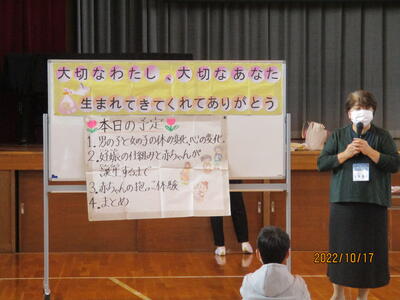 大切なわたし、大切なあなた
生まれてきてくれてありがとう
本日の予定
1. 男の子と女の子の体の変化、心の変化
2. 妊娠の仕組みと赤ちゃんが
誕生するまで
3. 赤ちゃんの抱っこ体験
4. まとめ
2022/10/17